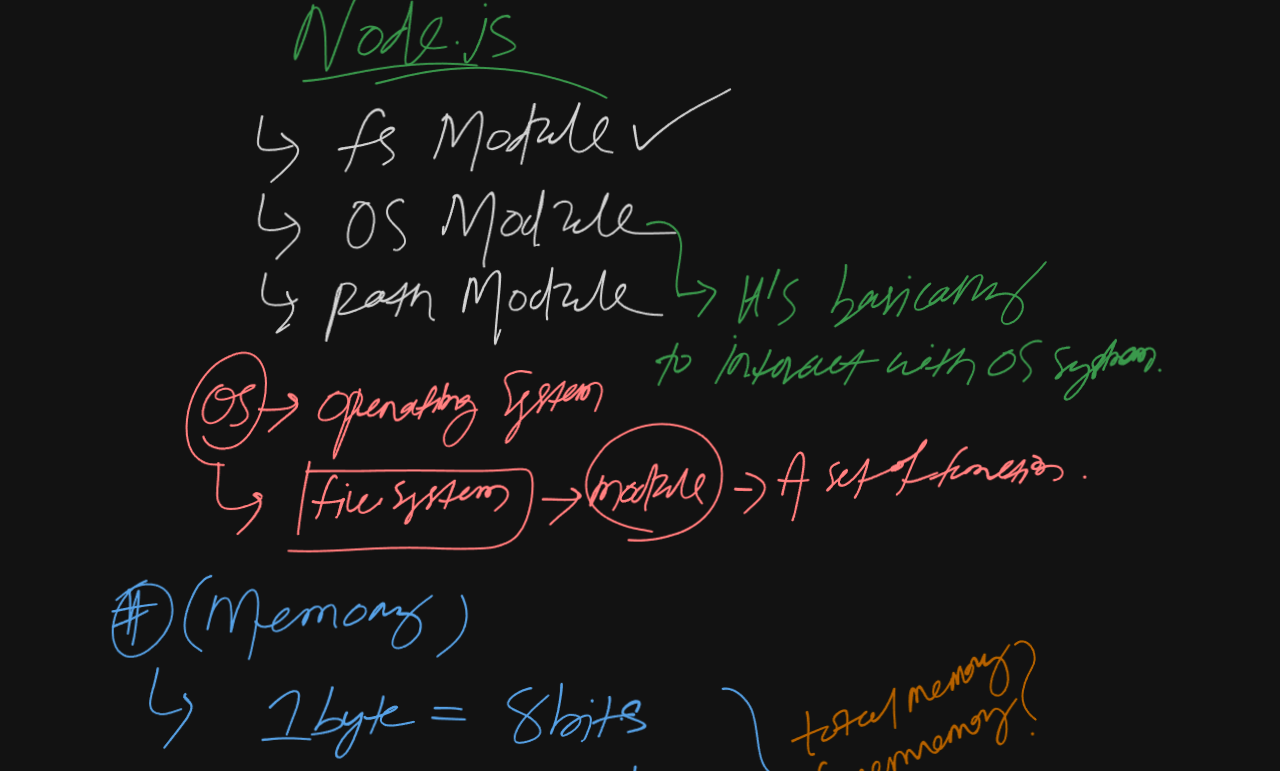 Node.js
↳ fs Module ✓
↳ OS Module
↳ path Module
↳ It's basically
to interact with OS system.
OS → Operating System
↳ file system → module → A set of function.
# (Memory)
↳ 1 byte = 8 bits
total memory
freememory